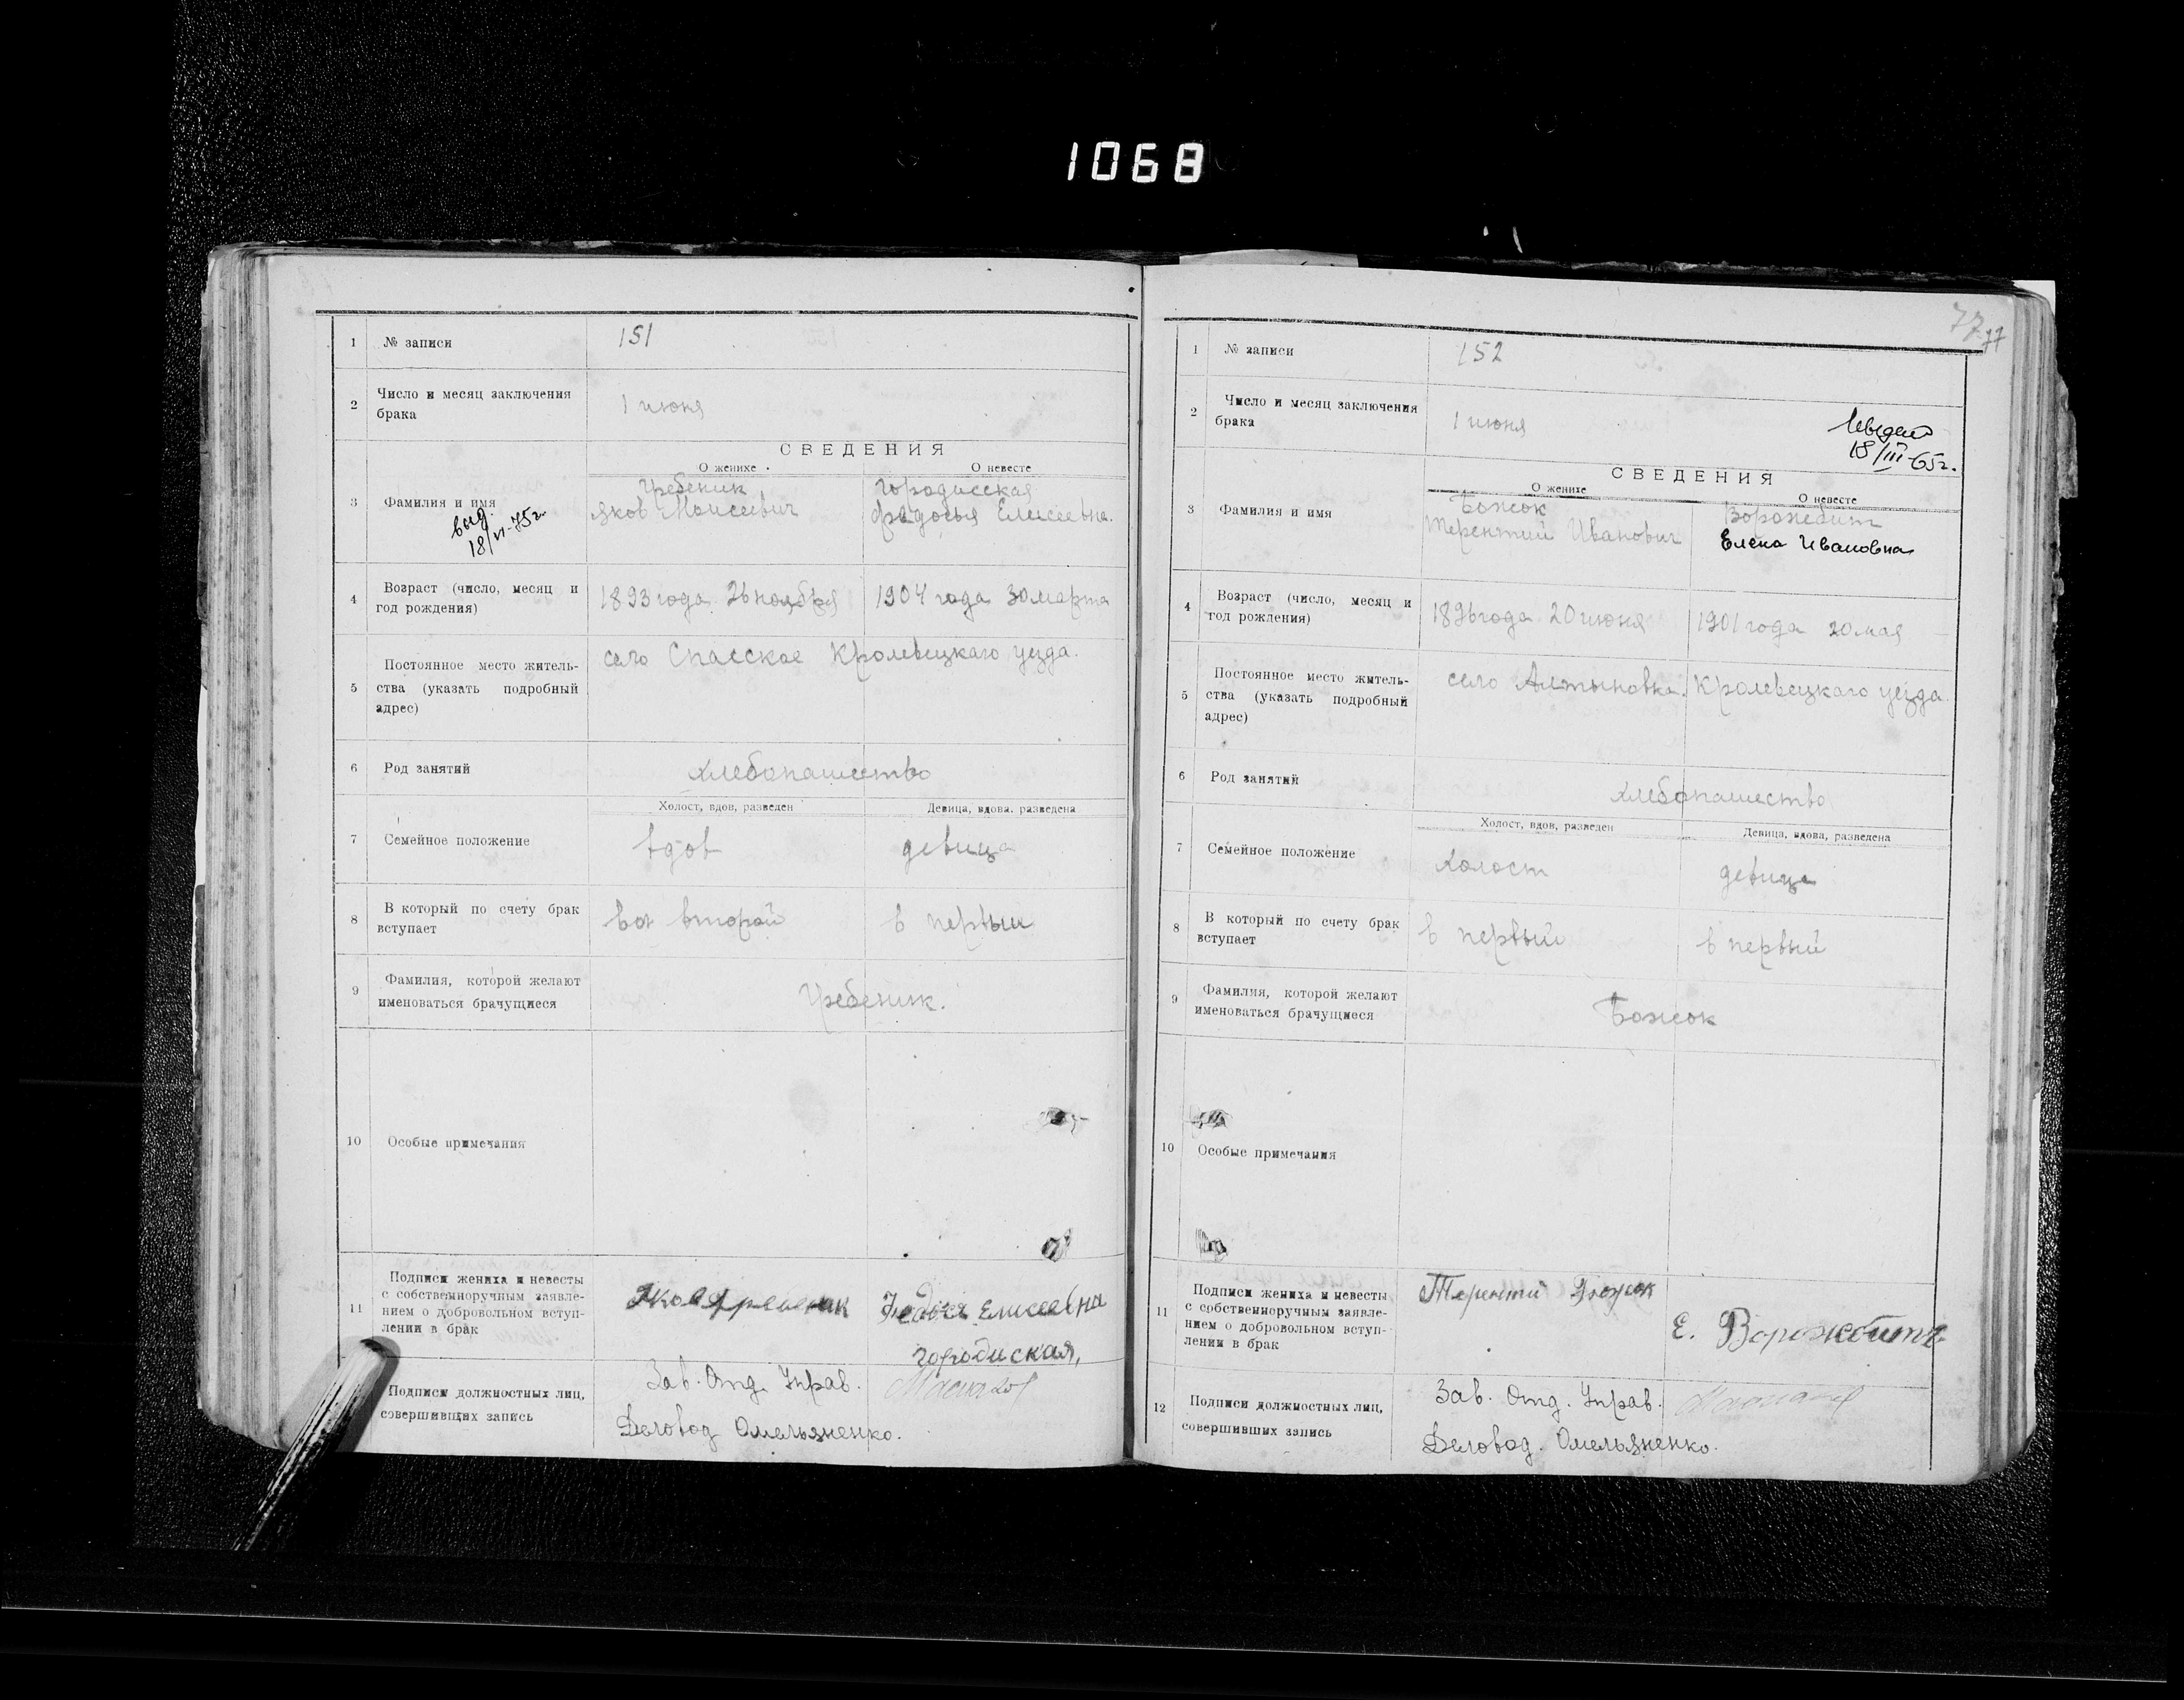 1068
1 № записи 151
2 Число и месяц заключения
брака
1 июня
СВЕДЕНИЯ
О женихе О невесте
3 Фамилия и имя
выд.
18/VI-75г.
Гребеник
Яков Моисеевич
Городисская
Федосья Елисеевна.
4 Возраст (число, месяц и
год рождения)
1893 года 26 ноября 1904 года 30 марта
5 Постоянное место житель-
ства (указать подробный
адрес)
село Спасское Кролевецкаго уезда.
6 Род занятий хлебопашество
Холост, вдов, разведен Девица, вдова, разведена
7 Семейное положение вдов девица
8 В который по счету брак
вступает
во второй в первый
9 Фамилия, которой желают
именоваться брачущиеся
Гребеник.
10 Особые примечания
11 Подписи жениха и невесты
с собственноручным заявле-
нием о добровольном вступ-
лении в брак
Яков Гребеник Елисеевна
городиская,
Подписи должностных лиц,
совершивших запись
Зав. Отд. Управ.
Деловод Омельяненко.
77 77
1 № записи 152
2 Число и месяц заключения
брака
1 июня
18/III-65г.
СВЕДЕНИЯ
О женихе О невесте
3 Фамилия и имя
Божок
Терентий Иванович
Ворожбит
Елена Ивановна
4 Возраст (число, месяц и
год рождения)
1896 года 20 июня 1901 года 20 мая
5 Постоянное место житель-
ства (указать подробный
адрес)
село Алтыновка. Кролевецкаго уезда.
6 Род занятий хлебопашество
Холост, вдов, разведен Девица, вдова, разведена
7 Семейное положение холост девица
8 В который по счету брак
вступает
в первый в первый
9 Фамилия, которой желают
именоваться брачущиеся
Божок
10 Особые примечания
11 Подписи жениха и невесты
с собственноручным заявле-
нием о добровольном вступ-
лении в брак
Терентий Божок
Е. Ворожбитъ
12 Подписи должностных лиц,
совершивших запись
Зав. Отд. Управ.
Деловод. Омельяненко.